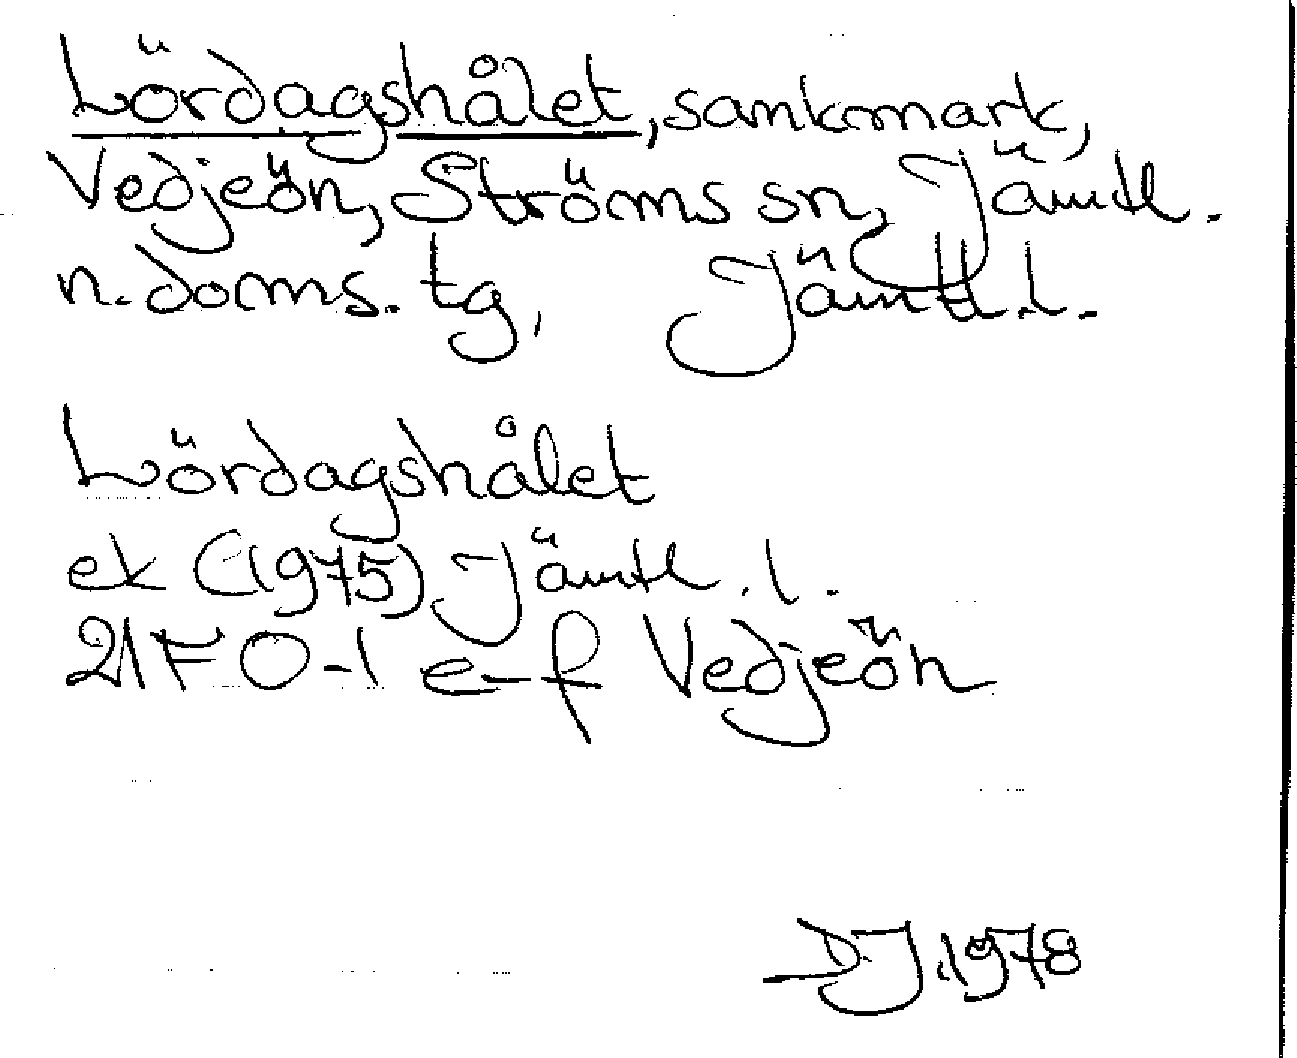 Lördagshålet, sankmark,
Vedjeön, Ströms sn, Jämtl.
n. doms. tg, Jämtl. l.
Lördagshålet
ek (1975) Jämtl. l.
21F 0-1 e-f Vedjeön
DJ. 1978